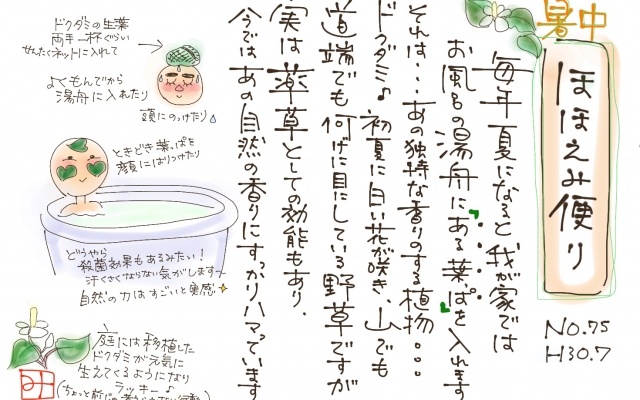 暑中
ほほえみ便り
No.75
H30.7
毎年夏になると我が家では
お風呂の湯舟にある葉っぱを入れます
それは・・・あの独特な香りのする植物。。。
ドクダミ♪初夏に白い花が咲き、山でも
道端でも何げに目にしている野草ですが
実は薬草としての効能もあり、
今ではあの自然の香りにすっかりハマっています
ドクダミの生葉
両手一杯ぐらい
せんたくネットに入れて
よくもんでから
湯舟に入れたり
頭にのっけたり
ときどき葉っぱを
顔にはりつけたり
どうやら
殺菌効果もあるみたい!
汗くさくならない気がします
自然の力はすごいと実感
庭には移植した
ドクダミが元気に
生えてくるようになり
ラッキー♪
み